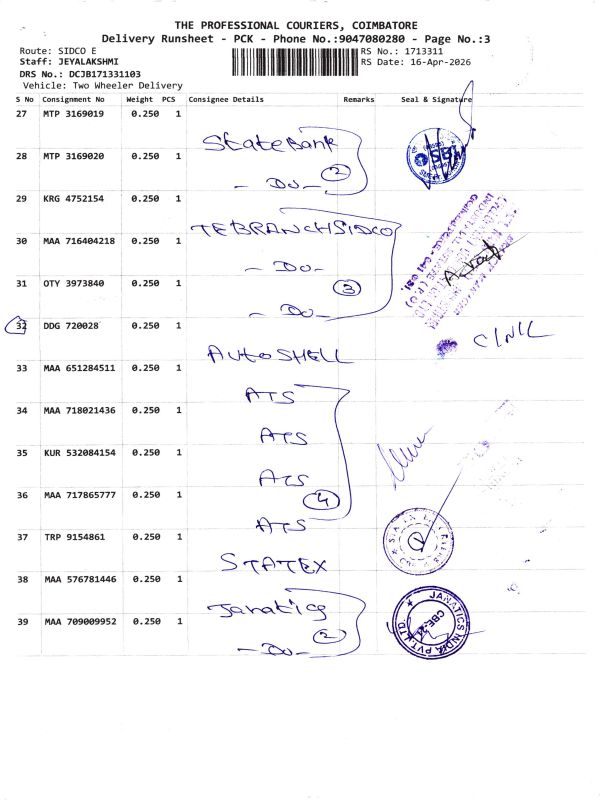 THE PROFESSIONAL COURIERS, COIMBATORE
Delivery Runsheet - PCK - Phone No.:9047080280 - Page No.:3
Route: SIDCO E
RS No.: 1713311
Staff: JEYALAKSHMI
RS Date: 16-Apr-2026
DRS No.: DCJB171331103
Vehicle: Two Wheeler Delivery
S No Consignment No Weight PCS Consignee Details Remarks Seal & Signature
27 MTP 3169019 0.250 1
State Bank
28 MTP 3169020 0.250 1
SBI
2
- DO -
29 KRG 4752154 0.250 1
TEBRANCHSIDCO
30 MAA 716404218 0.250 1
- DO -
31 OTY 3973840 0.250 1
3
- DO -
32 DDG 720028 0.250 1
C/NIL
AUTOSHELL
33 MAA 651284511 0.250 1
ATS
34 MAA 718021436 0.250 1
ATS
35 KUR 532084154 0.250 1
ATS
36 MAA 717865777 0.250 1
4
ATS
37 TRP 9154861 0.250 1
STATEX
38 MAA 576781446 0.250 1
Janatics
39 MAA 709009952 0.250 1
2
- DO -
JANATICS INDIA PVT. LTD.